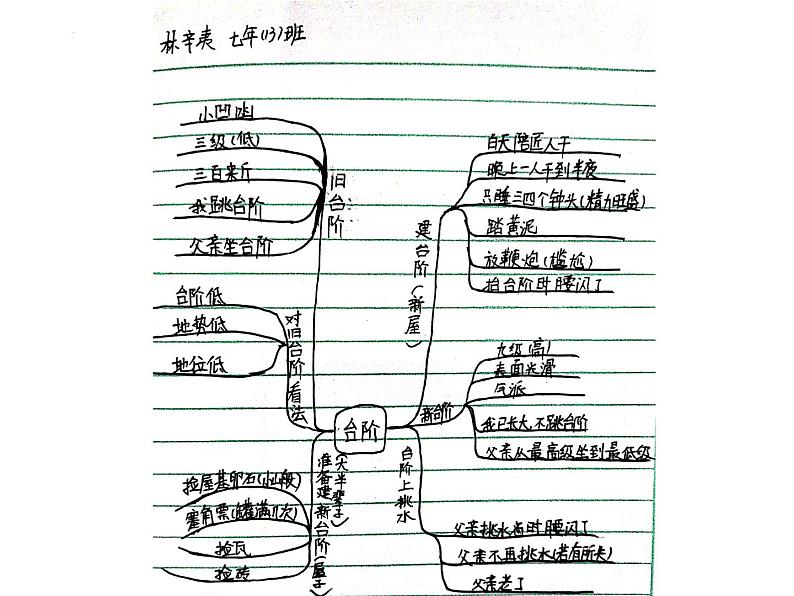 林辛夷 七年(13)班
小凹凼
三级(低)
三百来斤
我跳台阶
父亲坐台阶
旧台阶
台阶低
地势低
地位低
对旧台阶看法
台阶
捡屋基卵石(小山般)
塞角票(罐满几次)
捡瓦
捡砖
准备建新台阶(屋子)
(大半辈子)
白天陪匠人干
晚上一人干到半夜
只睡三四个钟头(精力旺盛)
踏黄泥
放鞭炮(尴尬)
抬台阶时腰闪了
建台阶(新屋)
九级(高)
表面光滑
气派
我已长大,不跳台阶
父亲从最高级坐到最低级
新台阶
台阶上挑水
父亲挑水当时腰闪了
父亲不再挑水(若有所失)
父亲老了